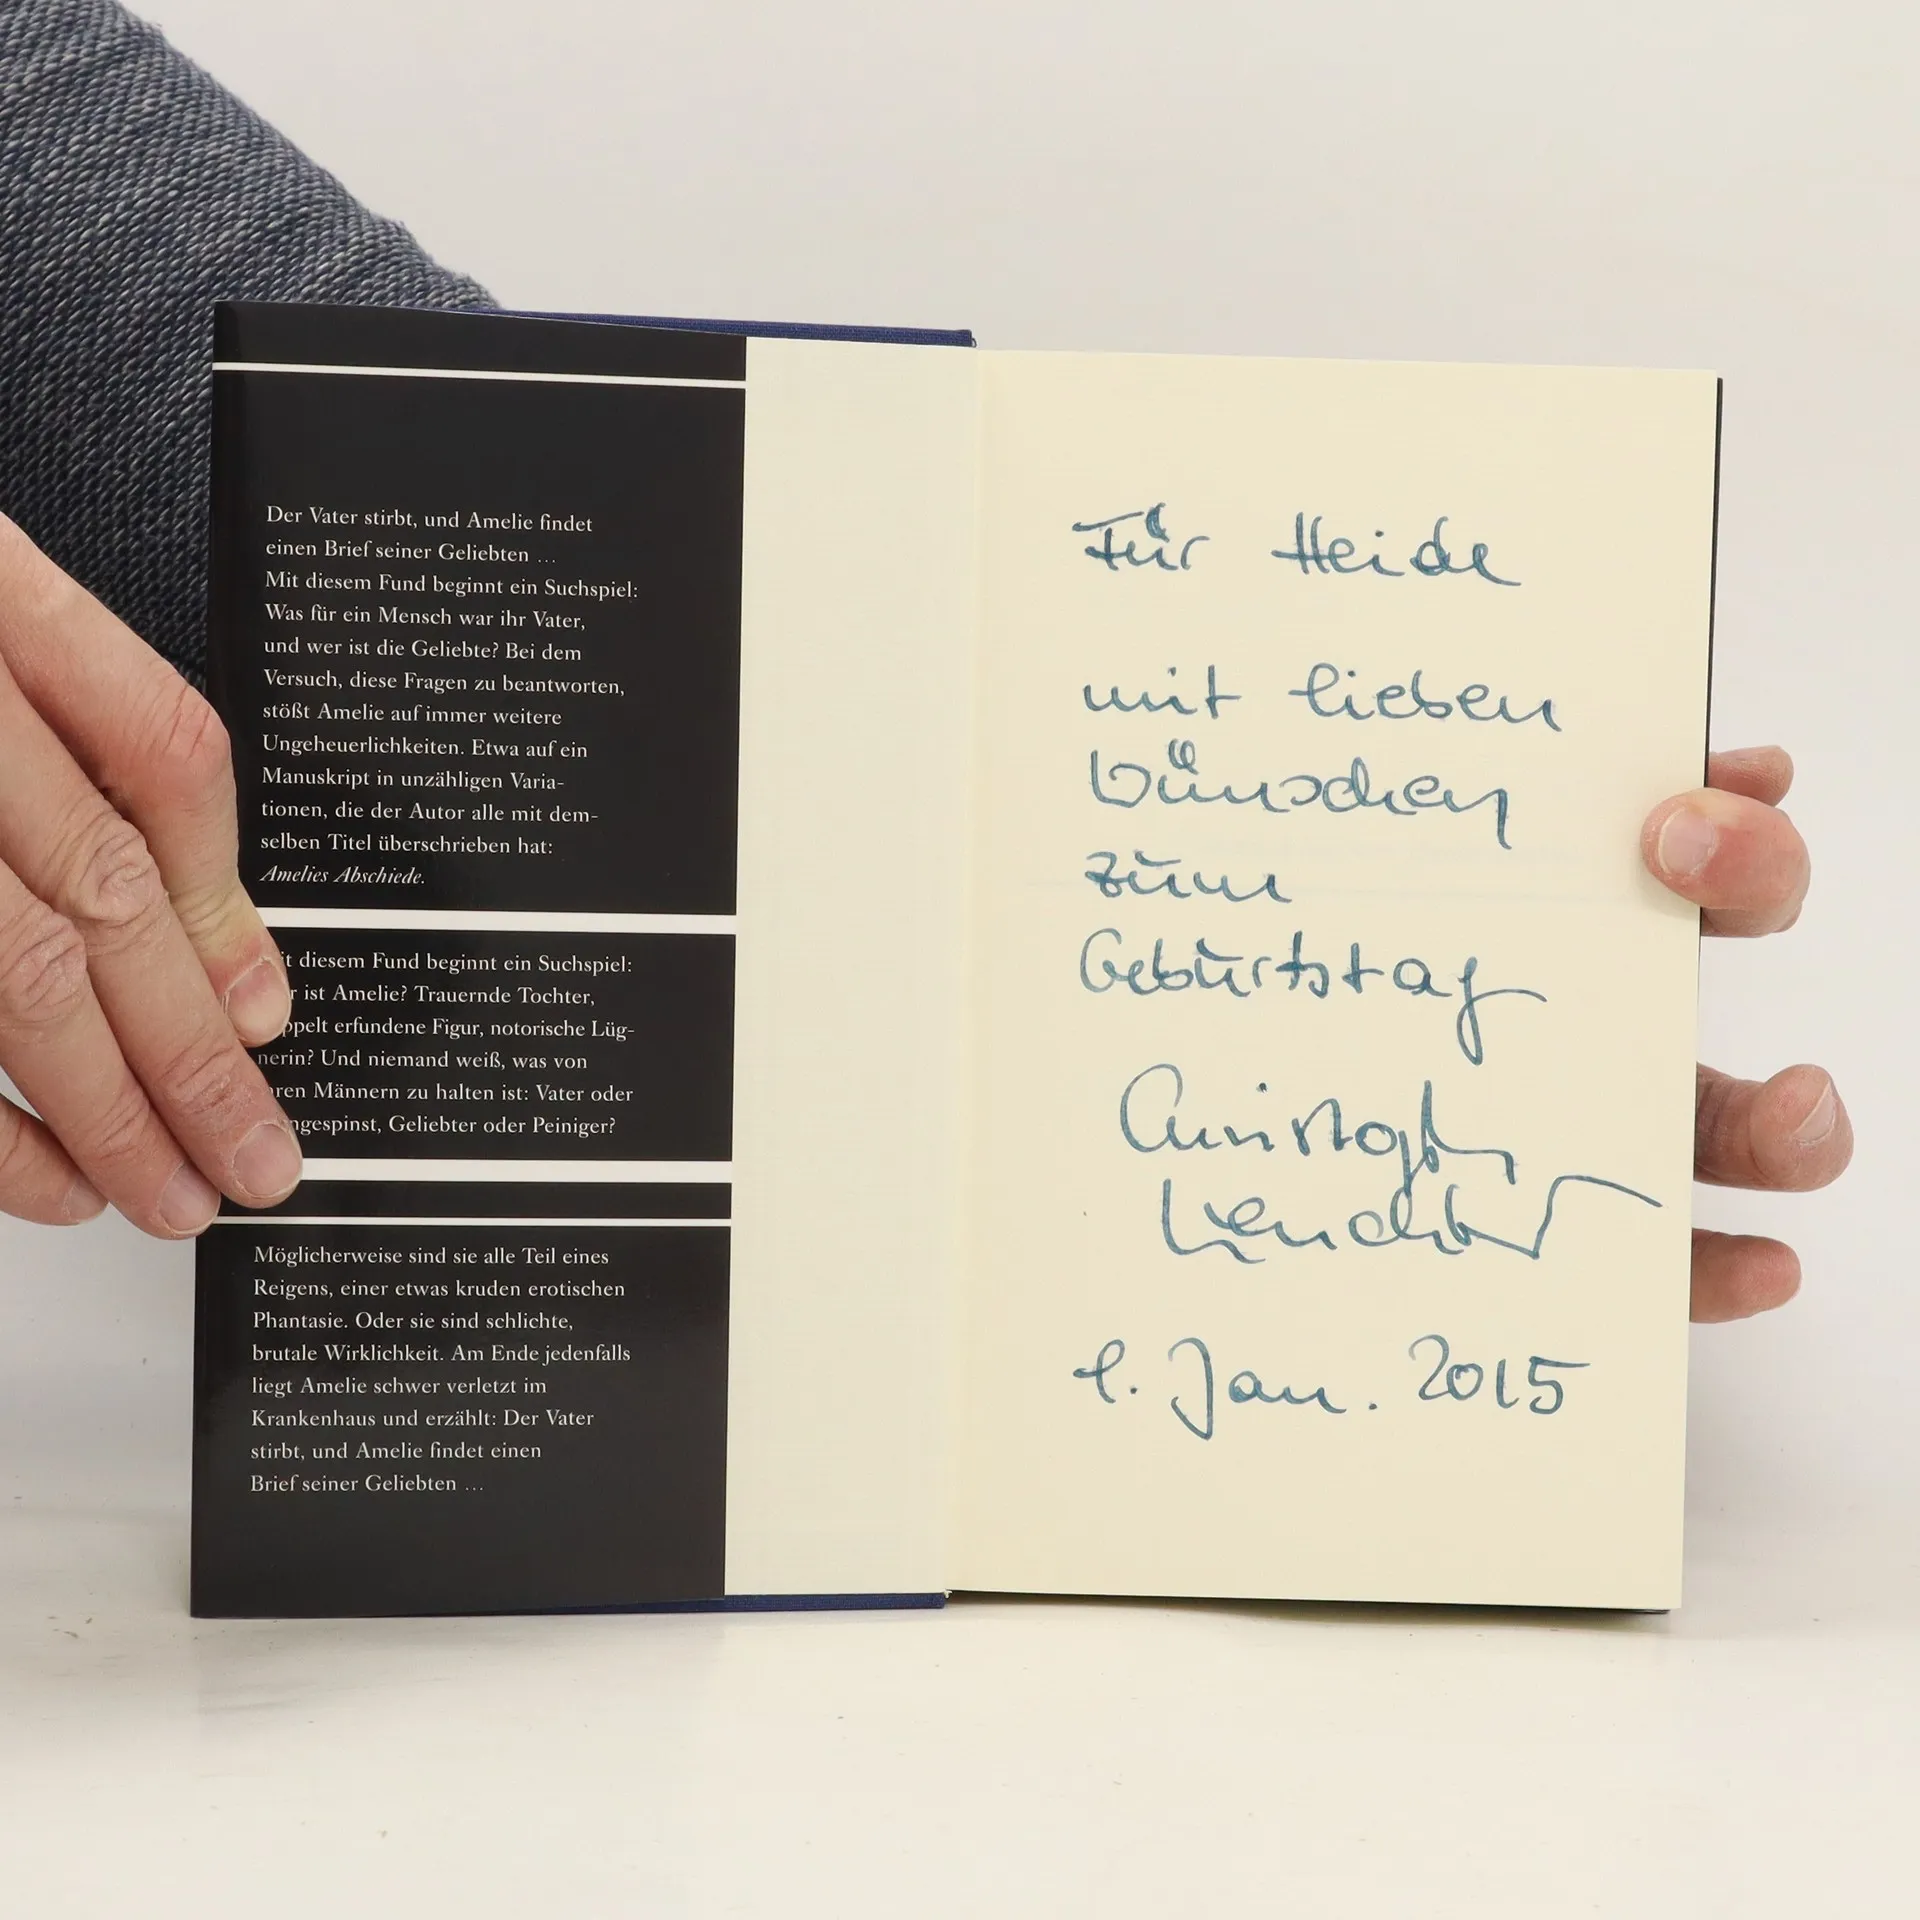 Der Vater stirbt, und Amelie findet
einen Brief seiner Geliebten …
Mit diesem Fund beginnt ein Suchspiel:
Was für ein Mensch war ihr Vater,
und wer ist die Geliebte? Bei dem
Versuch, diese Fragen zu beantworten,
stößt Amelie auf immer weitere
Ungeheuerlichkeiten. Etwa auf ein
Manuskript in unzähligen Varia-
tionen, die der Autor alle mit dem-
selben Titel überschrieben hat:
Amelies Abschiede.
it diesem Fund beginnt ein Suchspiel:
r ist Amelie? Trauernde Tochter,
ppelt erfundene Figur, notorische Lüg-
nerin? Und niemand weiß, was von
ren Männern zu halten ist: Vater oder
ngespinst, Geliebter oder Peiniger?
Möglicherweise sind sie alle Teil eines
Reigens, einer etwas kruden erotischen
Phantasie. Oder sie sind schlichte,
brutale Wirklichkeit. Am Ende jedenfalls
liegt Amelie schwer verletzt im
Krankenhaus und erzählt: Der Vater
stirbt, und Amelie findet einen
Brief seiner Geliebten …
Für Heide
mit lieben
Wünschen
zum
Geburtstag
Christoph
Jan. 2015